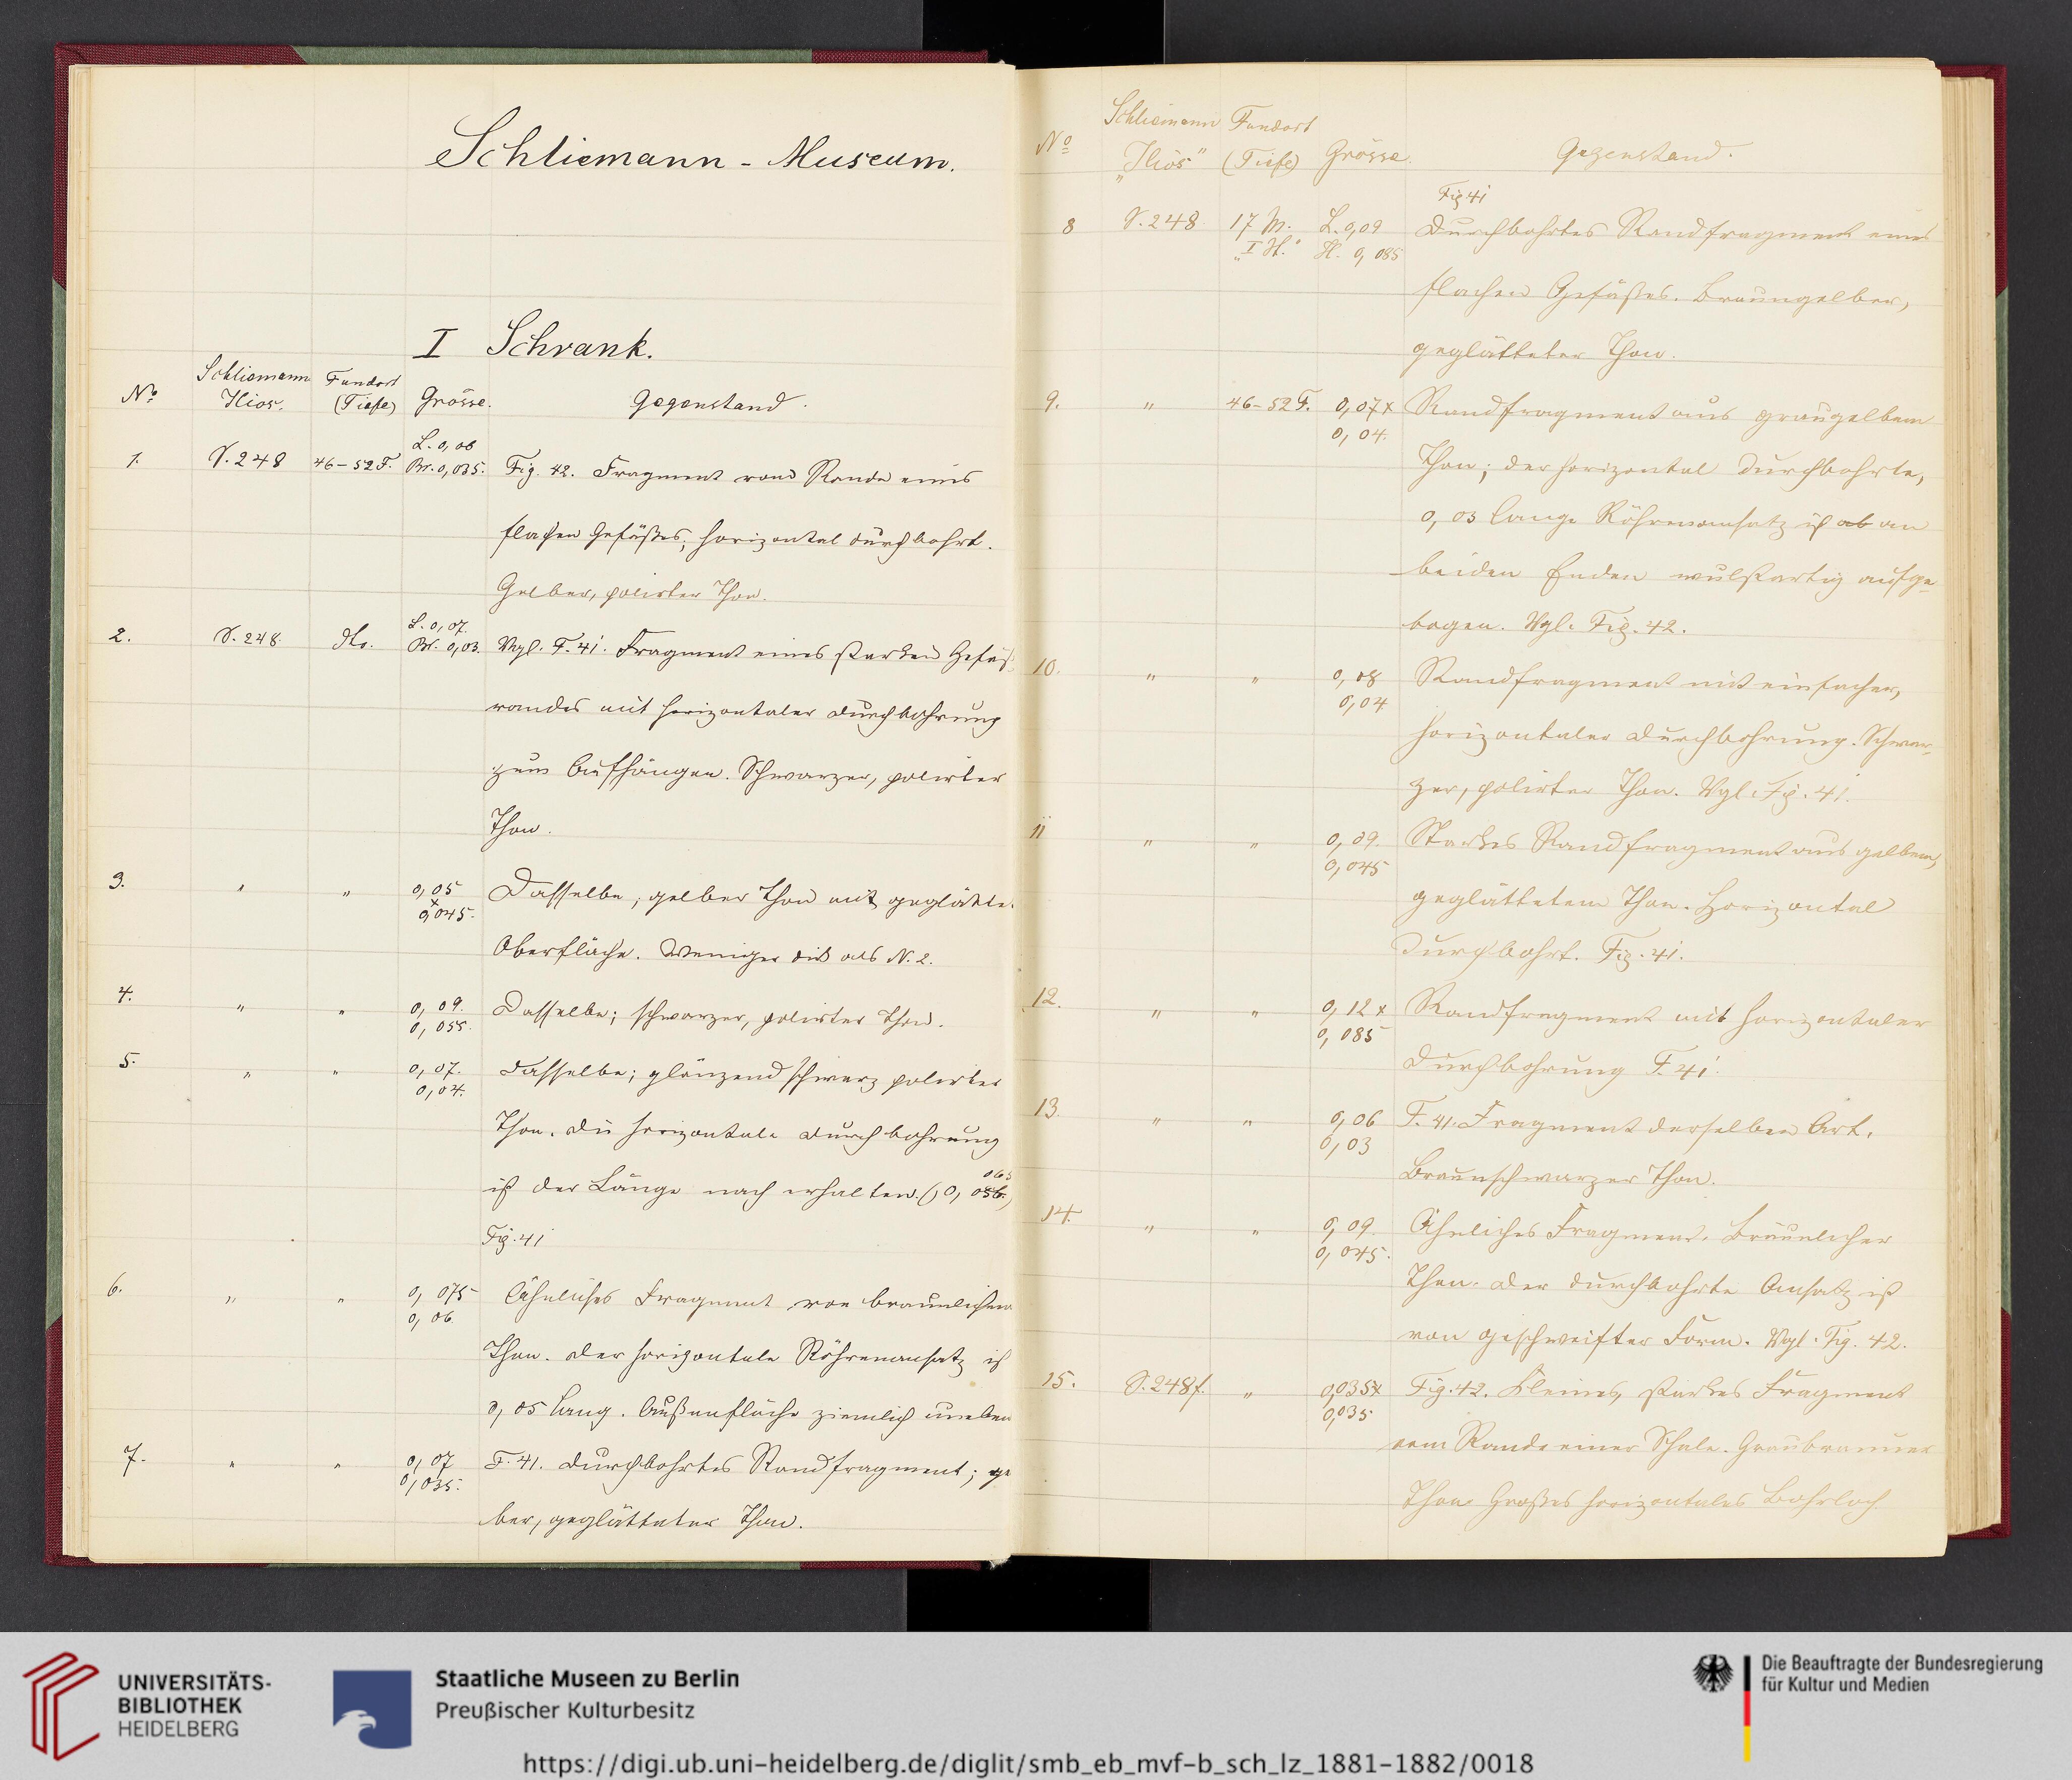 Schliemann-Museum.
I Schrank.
No. Schliemann Ilios. Fundort (Tiefe) Grösse. Gegenstand.
1. S. 248 46-52 F. L. 0,06 Br. 0,035. Fig. 42. Fragment vom Rande eines
flachen Gefäßes; horizontal durchbohrt.
Gelber, polirter Thon.
2. S. 248. dto. L. 0,07. Br. 0,03. Vgl. F. 41. Fragment eines starken Gefäß-
randes mit horizontaler Durchbohrung
zum Aufhängen. Schwarzer, polirter
Thon.
3. " " 0,05 x 0,045. Dasselbe, gelber Thon mit geglätte.
Oberfläche. Weniger dick als N. 2.
4. " " 0,09. 0,055. Dasselbe; schwarzer, polirter Thon.
5. " " 0,07. 0,04. Dasselbe; glänzend schwarz polirter
Thon. Die horizontale Durchbohrung
ist der Länge nach erhalten. (0,
Fig. 41
6. " " 0,075 0,06. Ähnliches Fragment von bräunlichem
Thon. Der horizontale Röhrenansatz ist
0,05 lang. Außenfläche ziemlich uneben
7. " " 0,07 0,035. F. 41. Durchbohrtes Randfragment; ge
ber, geglätteter Thon.
No Schliemann "Ilios" Fundort (Tiefe) Grösse. Gegenstand.
Fig 41
8 S. 248. 17 M. "I H." L. 0,09 H. 0,085 Durchbohrtes Randfragment eines
flachen Gefäßes. Braungelber,
geglätteter Thon.
9. " 46-52 F. 0,07 x 0,04. Randfragment aus graugelbem
Thon; der horizontal durchbohrte,
0,03 lange Röhrenansatz ist ab an
beiden Enden wulstartig aufge-
bogen. Vgl. Fig. 42.
10. " " 0,08 0,04 Randfragment mit einfacher,
horizontaler Durchbohrung. Schwar-
zer, polirter Thon. Vgl. Fig. 41.
11 " " 0,09. 0,045 Starkes Randfragment aus gelbem,
geglättetem Thon. Horizontal
durchbohrt. Fig. 41.
12. " " 0,12 x 0,085 Randfragment mit horizontaler
Durchbohrung F. 41.
13. " " 0,06 0,03 F. 41. Fragment derselben Art.
Braunschwarzer Thon.
14. " " 0,09. 0,045. Ähnliches Fragment. Bräunlicher
Thon. Der durchbohrte Ansatz ist
von geschweifter Form. Vgl. Fig. 42.
15. S. 248f. " 0,035 x 0,035 Fig. 42. Kleines, starkes Fragment
vom Rande einer Schale. Graubrauner
Thon Großes horizontales Bohrloch
UNIVERSITÄTS-
BIBLIOTHEK
HEIDELBERG
Staatliche Museen zu Berlin
Preußischer Kulturbesitz
Die Beauftragte der Bundesregierung
für Kultur und Medien
https://digi.ub.uni-heidelberg.de/diglit/smb_eb_mvf-b_sch_lz_1881-1882/0018